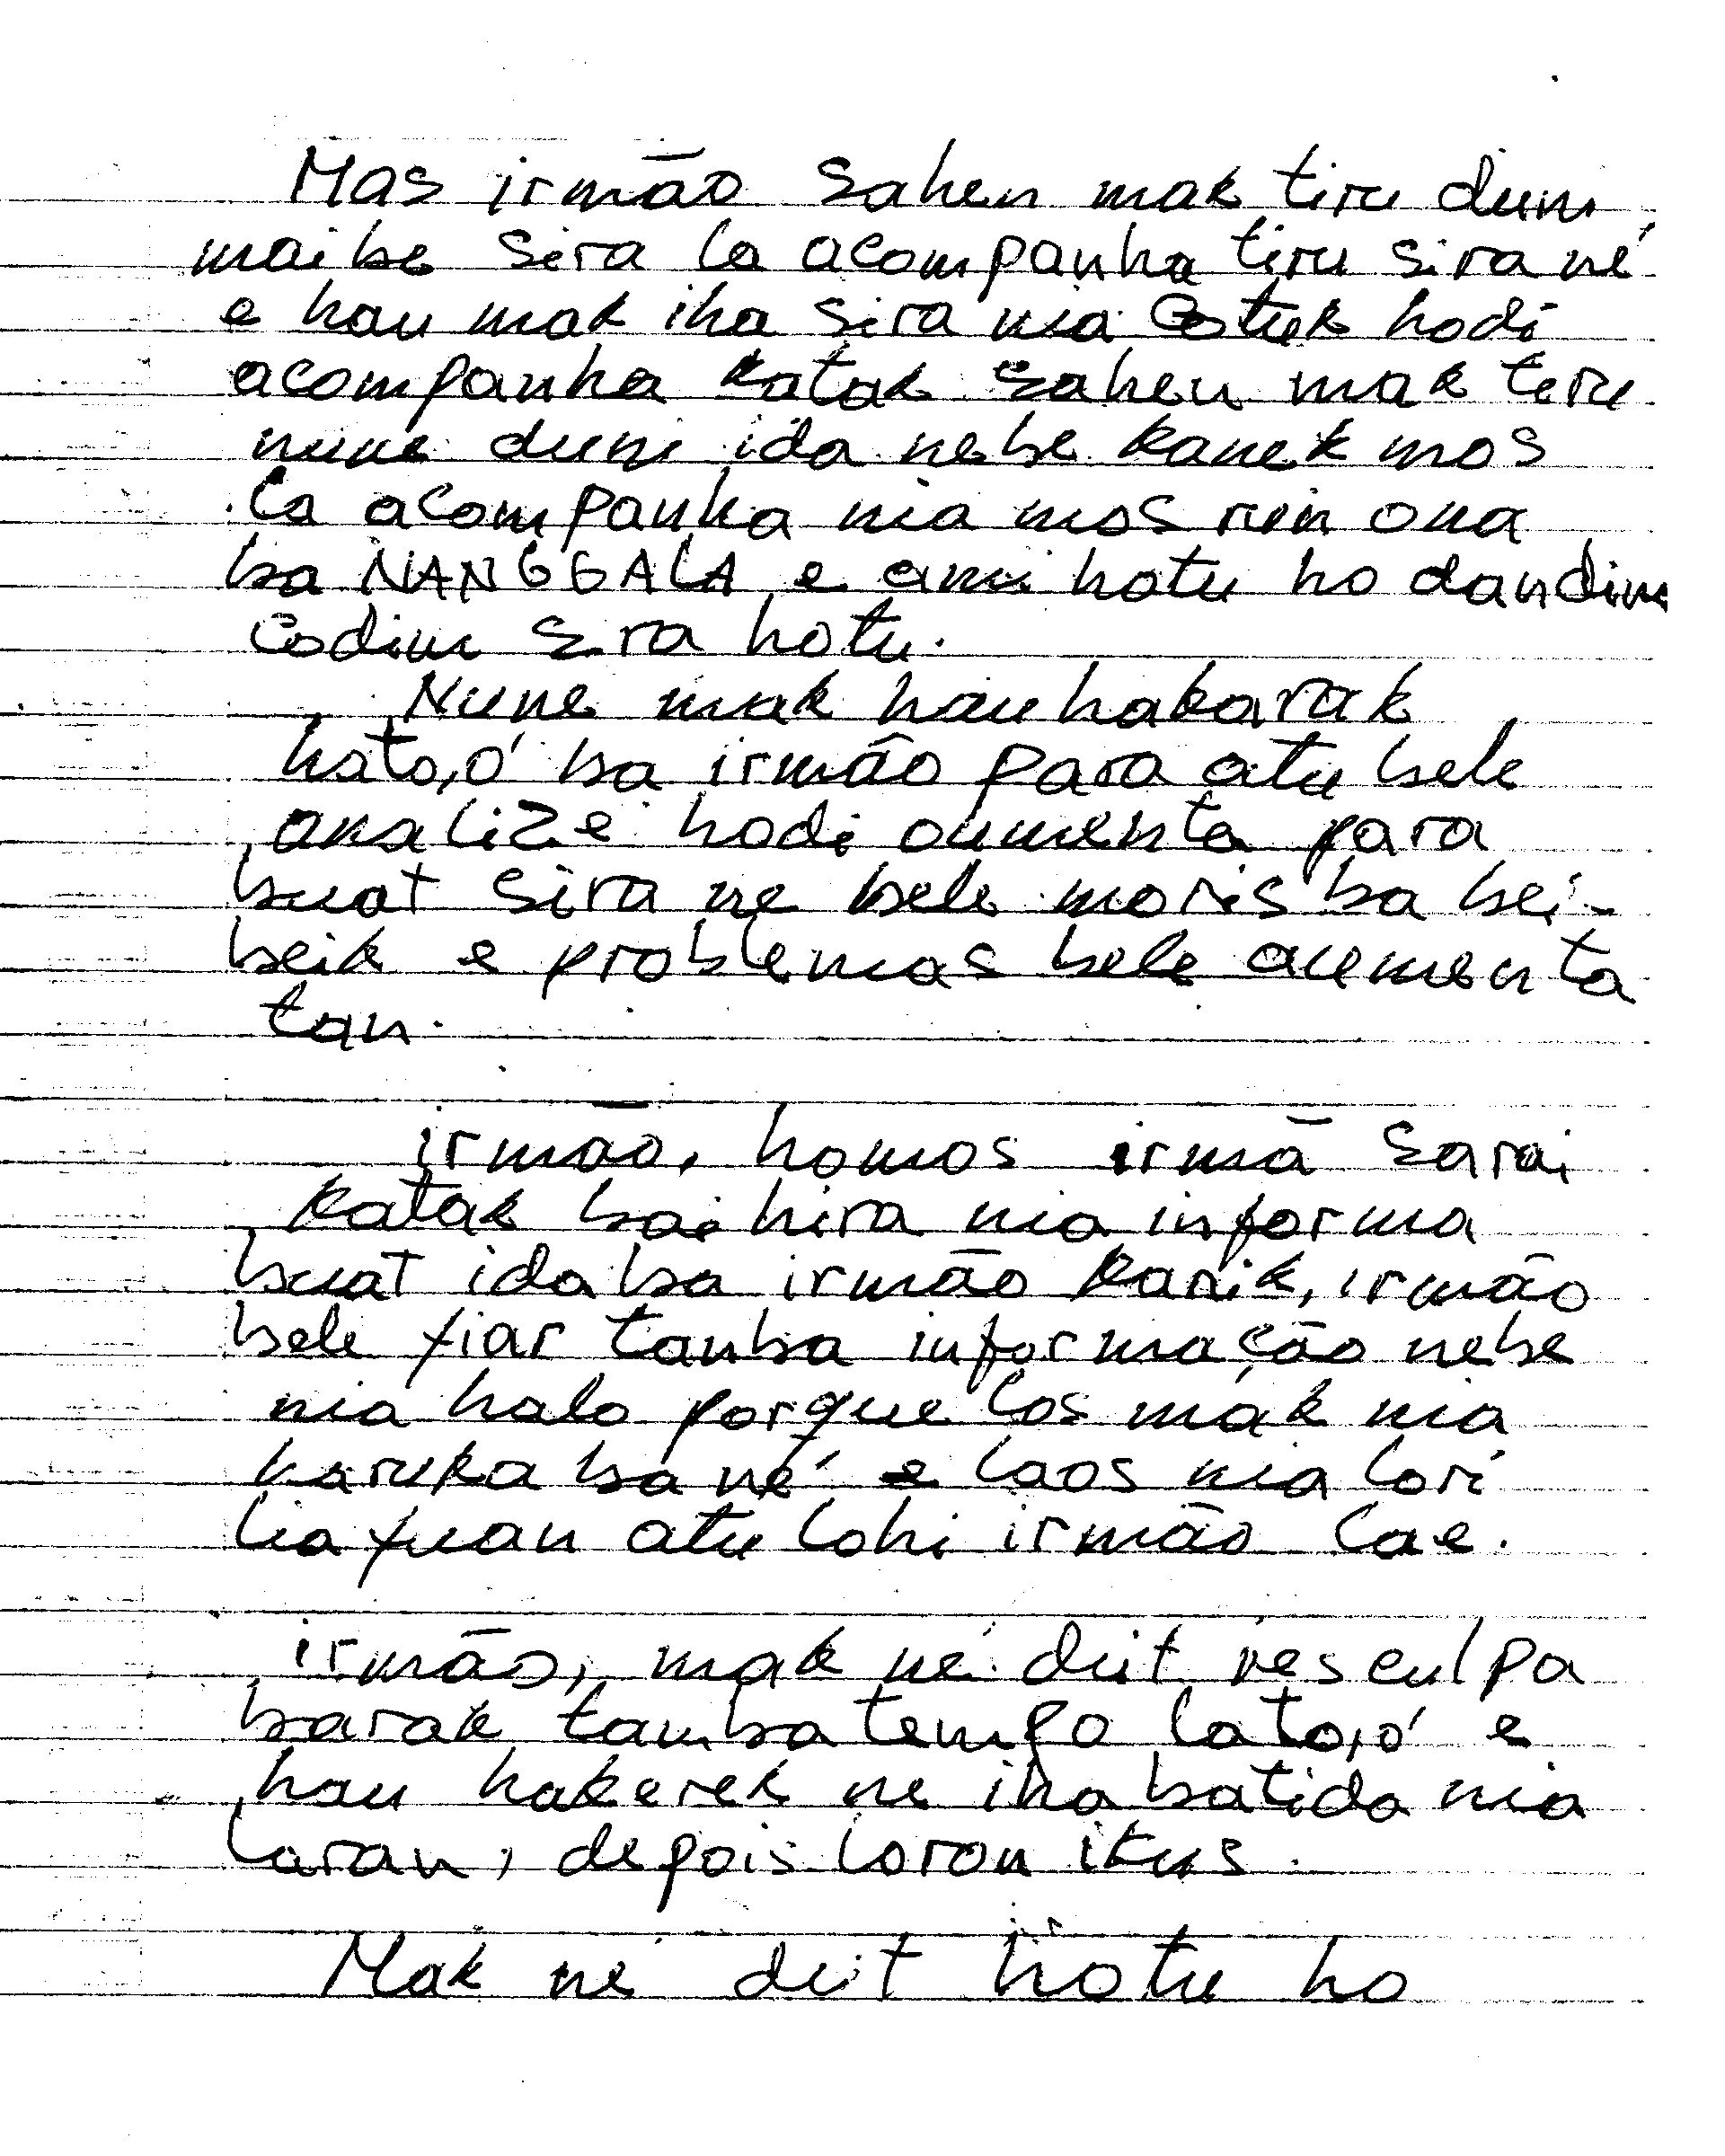 Mas irmão Sahen mak tiru duni,
maibe sira la acompanha tiru sira né
e hau mak iha sira nia Cotuk hodi
acompanha katak Sahen mak tiru
nuné duni ida nebe kanek mos
la acompanha nia mos rin ona
ba NANGGALA e ami hotu ho dandim
Codim sira hotu.
Nune mak hau hakarak
hato,ó ba irmão para atu bele
analize hodi aumenta para
buat sira ne bele moris ba bei-
beik e problemas bele aumenta
tan.
irmão, homos irmã Sarai
katak baihira nia informa
buat ida ba irmão Karik, irmão
bele fiar tanba informação nebe
nia halo porque los mak nia
haruka ba né e laos nia lori
liafuan atu lohi irmão lae.
irmão, mak né deit resculpa
barak tamba tempo lato,ó e
hau hakerek ne iha batida nia
laran, depois loron ikus.
Mak né deit hotu ho